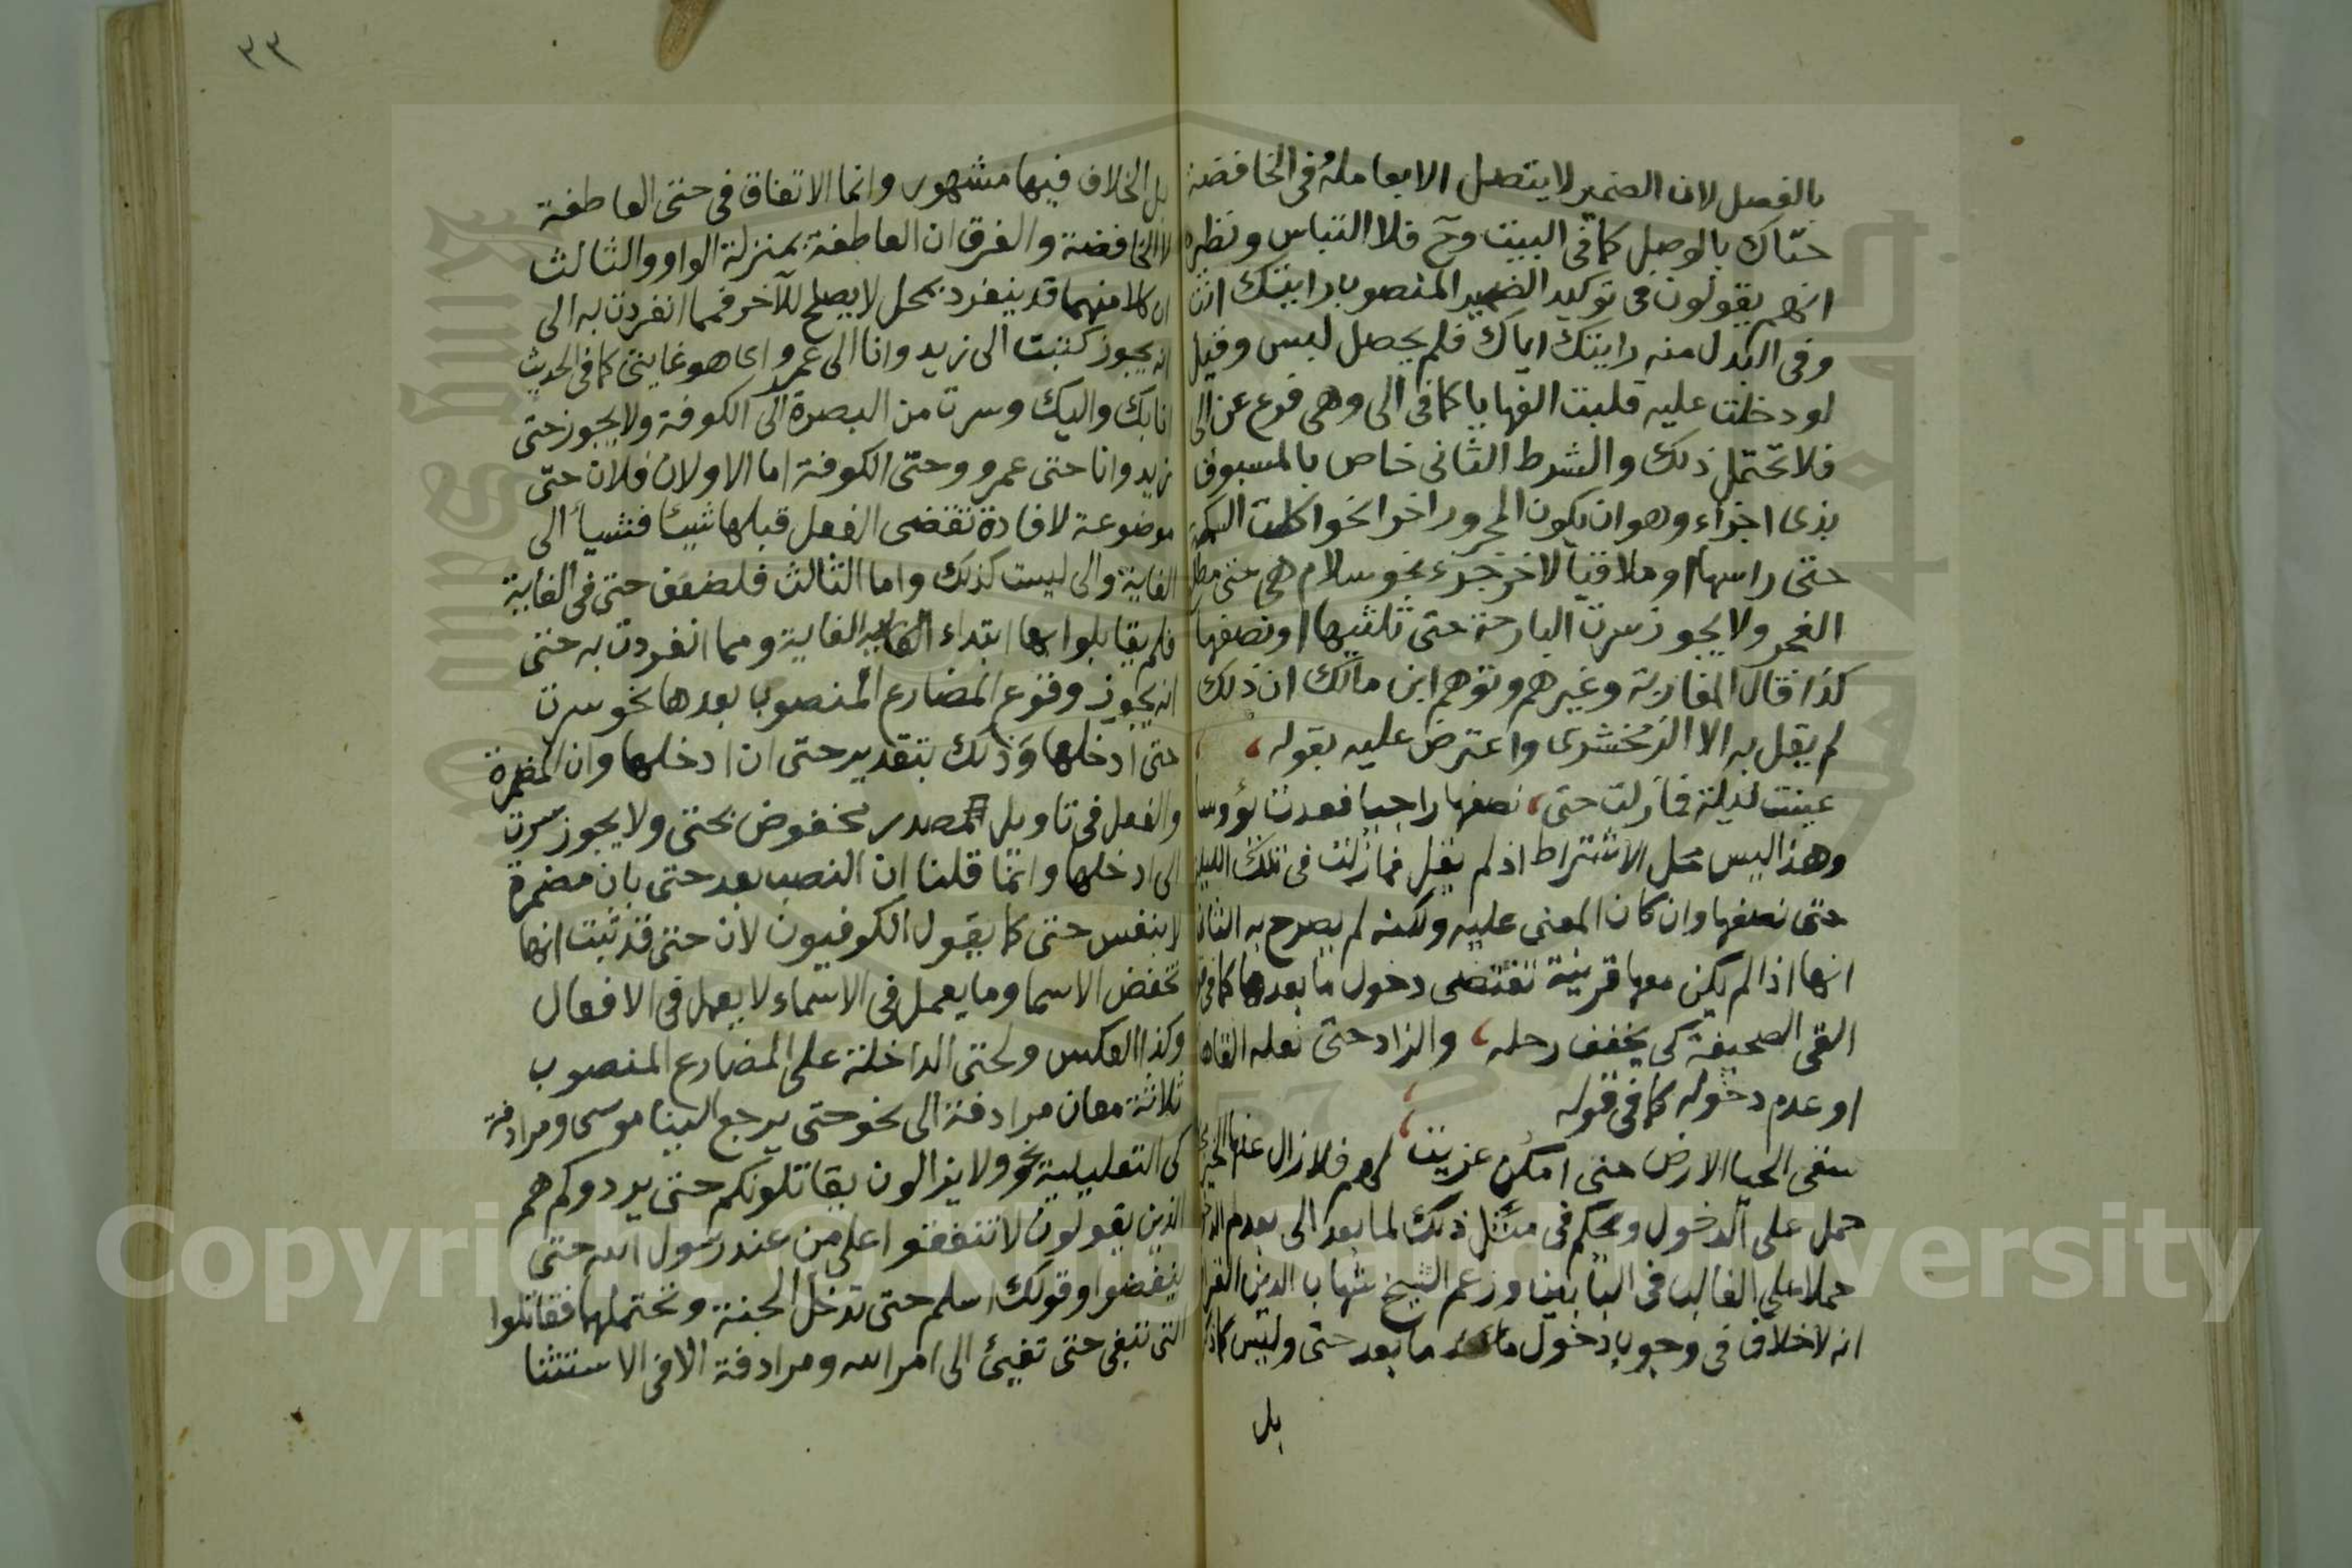 ٣٣
بالفصل لان الضمير لا يتصل الا بعامله وفى الخافضة
حتاك بالوصل كما فى البيت وح فلا التباس ونظيره
انهم يقولون فى توكيد الضمير المنصوب رايتك انت
وفى البدل منه رايتك اياك فلم يحصل لبس وقيل
لو دخلت عليه قلبت الفها ياء كما فى الى وهى فرع عن الى
فلا تحتمل ذلك والشرط الثانى خاص بالمسبوق
بذى اجزاء وهو ان يكون المجرور اخرا نحو اكلت السمكة
حتى راسها او ملاقيا لاخر جزء نحو سلام هى حتى مطلع
الفجر ولا يجوز سرت البارحة حتى ثلثيها او نصفها
كذا قال المغاربة وغيرهم وتوهم ابن مالك ان ذلك
لم يقل به الا الزمخشرى واعترض عليه بقوله
عينت ليلة فما زلت حتى، نصفها راجيا فعدت يؤوسا
وهذا ليس محل الاشتراط اذ لم يقل فما زلت فى تلك الليلة
حتى نصفها وان كان المعنى عليه ولكنه لم يصرح به الثانى
انها اذا لم يكن معها قرينة تقتضى دخول ما بعدها كما فى
القى الصحيفة كى يخفف رحله، والزاد حتى نعله القاها
او عدم دخوله كما فى قوله
سقى الحيا الارض حتى امكن عزيت، لهم فلا زال عنها الخير
حمل على الدخول ويحكم فى مثل ذلك لما بعد الى بعدم الدخول
حملا على الغالب فى البابين وزعم الشيخ شهاب الدين القرا
انه لا خلاف فى وجوب دخول ما بعد حتى وليس كذ
بل
بل الخلاف فيها مشهور وانما الاتفاق فى حتى العاطفة
لا الخافضة والفرق ان العاطفة بمنزلة الواو والثالث
ان كلا منهما قد ينفرد بمحل لا يصلح للآخر فمما انفردت به الى
انه يجوز كتبت الى زيد وانا الى عمرو اى هو غايتى كما فى الحديث
انا بك واليك وسرت من البصرة الى الكوفة ولا يجوز حتى
زيد وانا حتى عمرو وحتى الكوفة اما الاولان فلان حتى
موضوعة لافادة تقضى الفعل قبلها شيئا فشيأ الى
الغاية والى ليست كذلك واما الثالث فلضعف حتى فى الغاية
فلم يقابلوا بها ابتداء الغاية ومما انفردت به حتى
انه يجوز وقوع المضارع المنصوب بعدها نحو سرت
حتى ادخلها وذلك بتقدير حتى ان ادخلها وان المضمرة
والفعل فى تاويل مصدر مخفوض بحتى ولا يجوز سرت
الى ادخلها وانما قلنا ان النصب بعد حتى بان مضمرة
لا بنفس حتى كما يقول الكوفيون لان حتى قد ثبت انها
تخفض الاسما وما يعمل فى الاسماء لا يعمل فى الافعال
وكذا العكس ولحتى الداخلة على المضارع المنصوب
ثلاثة معان مرادفة الى نحو حتى يرجع الينا موسى ومرادفة
كى التعليلية نحو ولا يزالون يقاتلونكم حتى يردوكم هم
الذين يقولون لا تنفقوا على من عند رسول الله حتى
ينفضوا وقولك اسلم حتى تدخل الجنة وتحتملها فقاتلوا
التى تبغى حتى تفيئ الى امر الله ومرادفة الا فى الاستثنا
Copyright © King Saud University